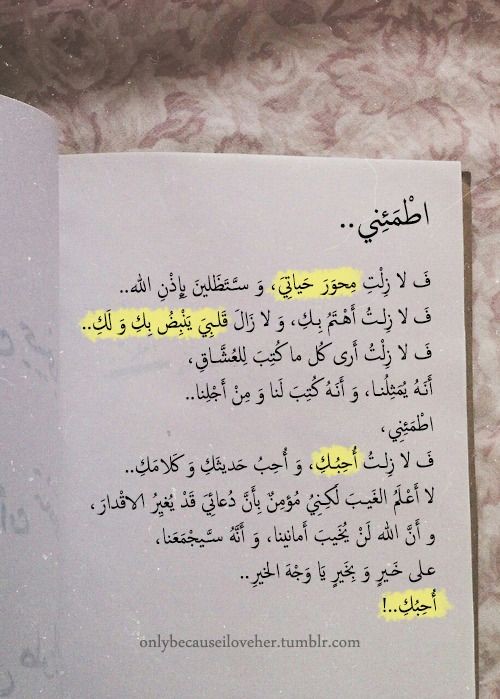 اطْمَئِنِي..
فَ لا زِلْتِ مِحوَرَ حَياتِيَ، وَ سـَتَظَلينَ بِإِذْنِ الله..
فَ لا زِلـتُ أَهْتَمُ بِـكِ، وَ لا زَالَ قَلـبِيَ يَنْبِضُ بِكِ وَ لَكِ..
فَ لا زِلْتُ أَرى كُل ما كُتِبَ لِلعُشَّـاقِ،
أَنَـهُ يُمَثِلُنـا، وَ أَنَـهُ كُتِبَ لَنا وَ مِنْ أَجْلِنا..
اطْمَئِنِي،
فَ لا زِلـتُ أُحِبُـكِ، وَ أُحِبُ حَديثَكِ وَ كَلامَكِ..
لا أَعْلَمَ الغَيـبَ لَكِنِيُ مُؤمِنٌ بِأَنَّ دُعائِيَ قَدْ يُغيِرُ الاقْدارَ،
و أَنَّ الله لَنْ يُخَيبَ أَمانينا، وَ أَنَّهُ سـَيجْمَعَنا،
على خَـيرٍ وَ بِخَيرٍ يَا وَجْهَ الخيرِ..
أُحِبُكِ..!
onlybecauseiloveher.tumblr.com